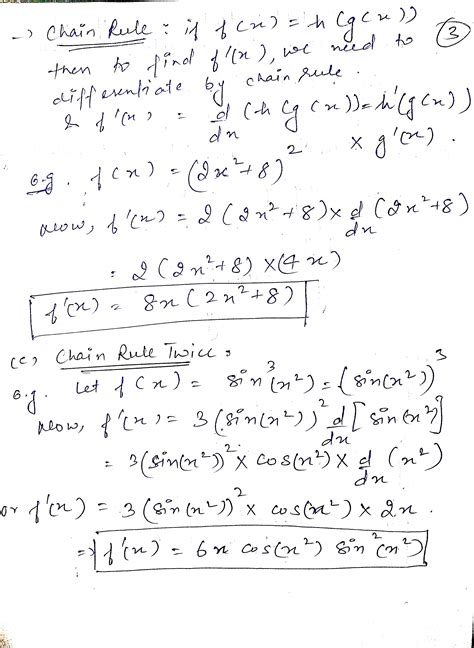 → Chain Rule : if f(x) = h(g(x)) ③
then to find f'(x), we need to
differentiate by chain rule.
& f'(x) = d/dx (h(g(x))) = h'(g(x))
× g'(x).
e.g. f(x) = (2x²+8)²
Now, f'(x) = 2(2x²+8) × d/dx (2x²+8)
= 2(2x²+8) × (4x)
f'(x) = 8x(2x²+8)
(c) Chain Rule Twice :
e.g. Let f(x) = sin³(x²) = {sin(x²)}³
Now, f'(x) = 3(sin(x²))² d/dx [sin(x²)]
= 3(sin(x²))² × cos(x²) × d/dx (x²)
or f'(x) = 3(sin(x²))² × cos(x²) × 2x.
⇒ f'(x) = 6x cos(x²) sin²(x²)